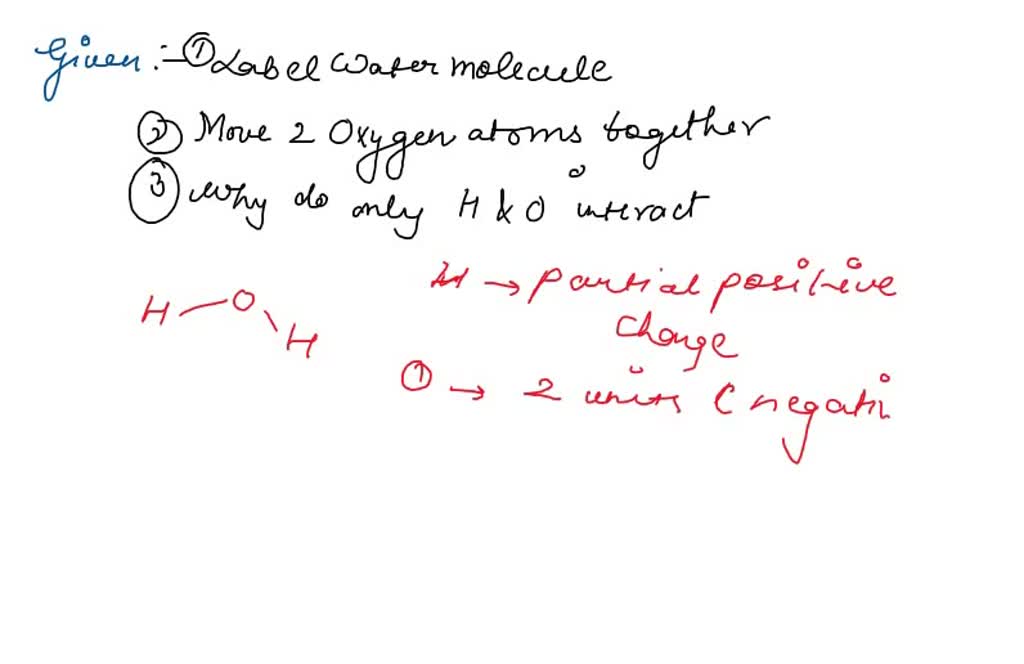 Given :- ① Label water molecule
② Move 2 Oxygen atoms together
③ Why do only H & O interact
H → partial positive
charge
H—O
H
① → 2 units ( negati